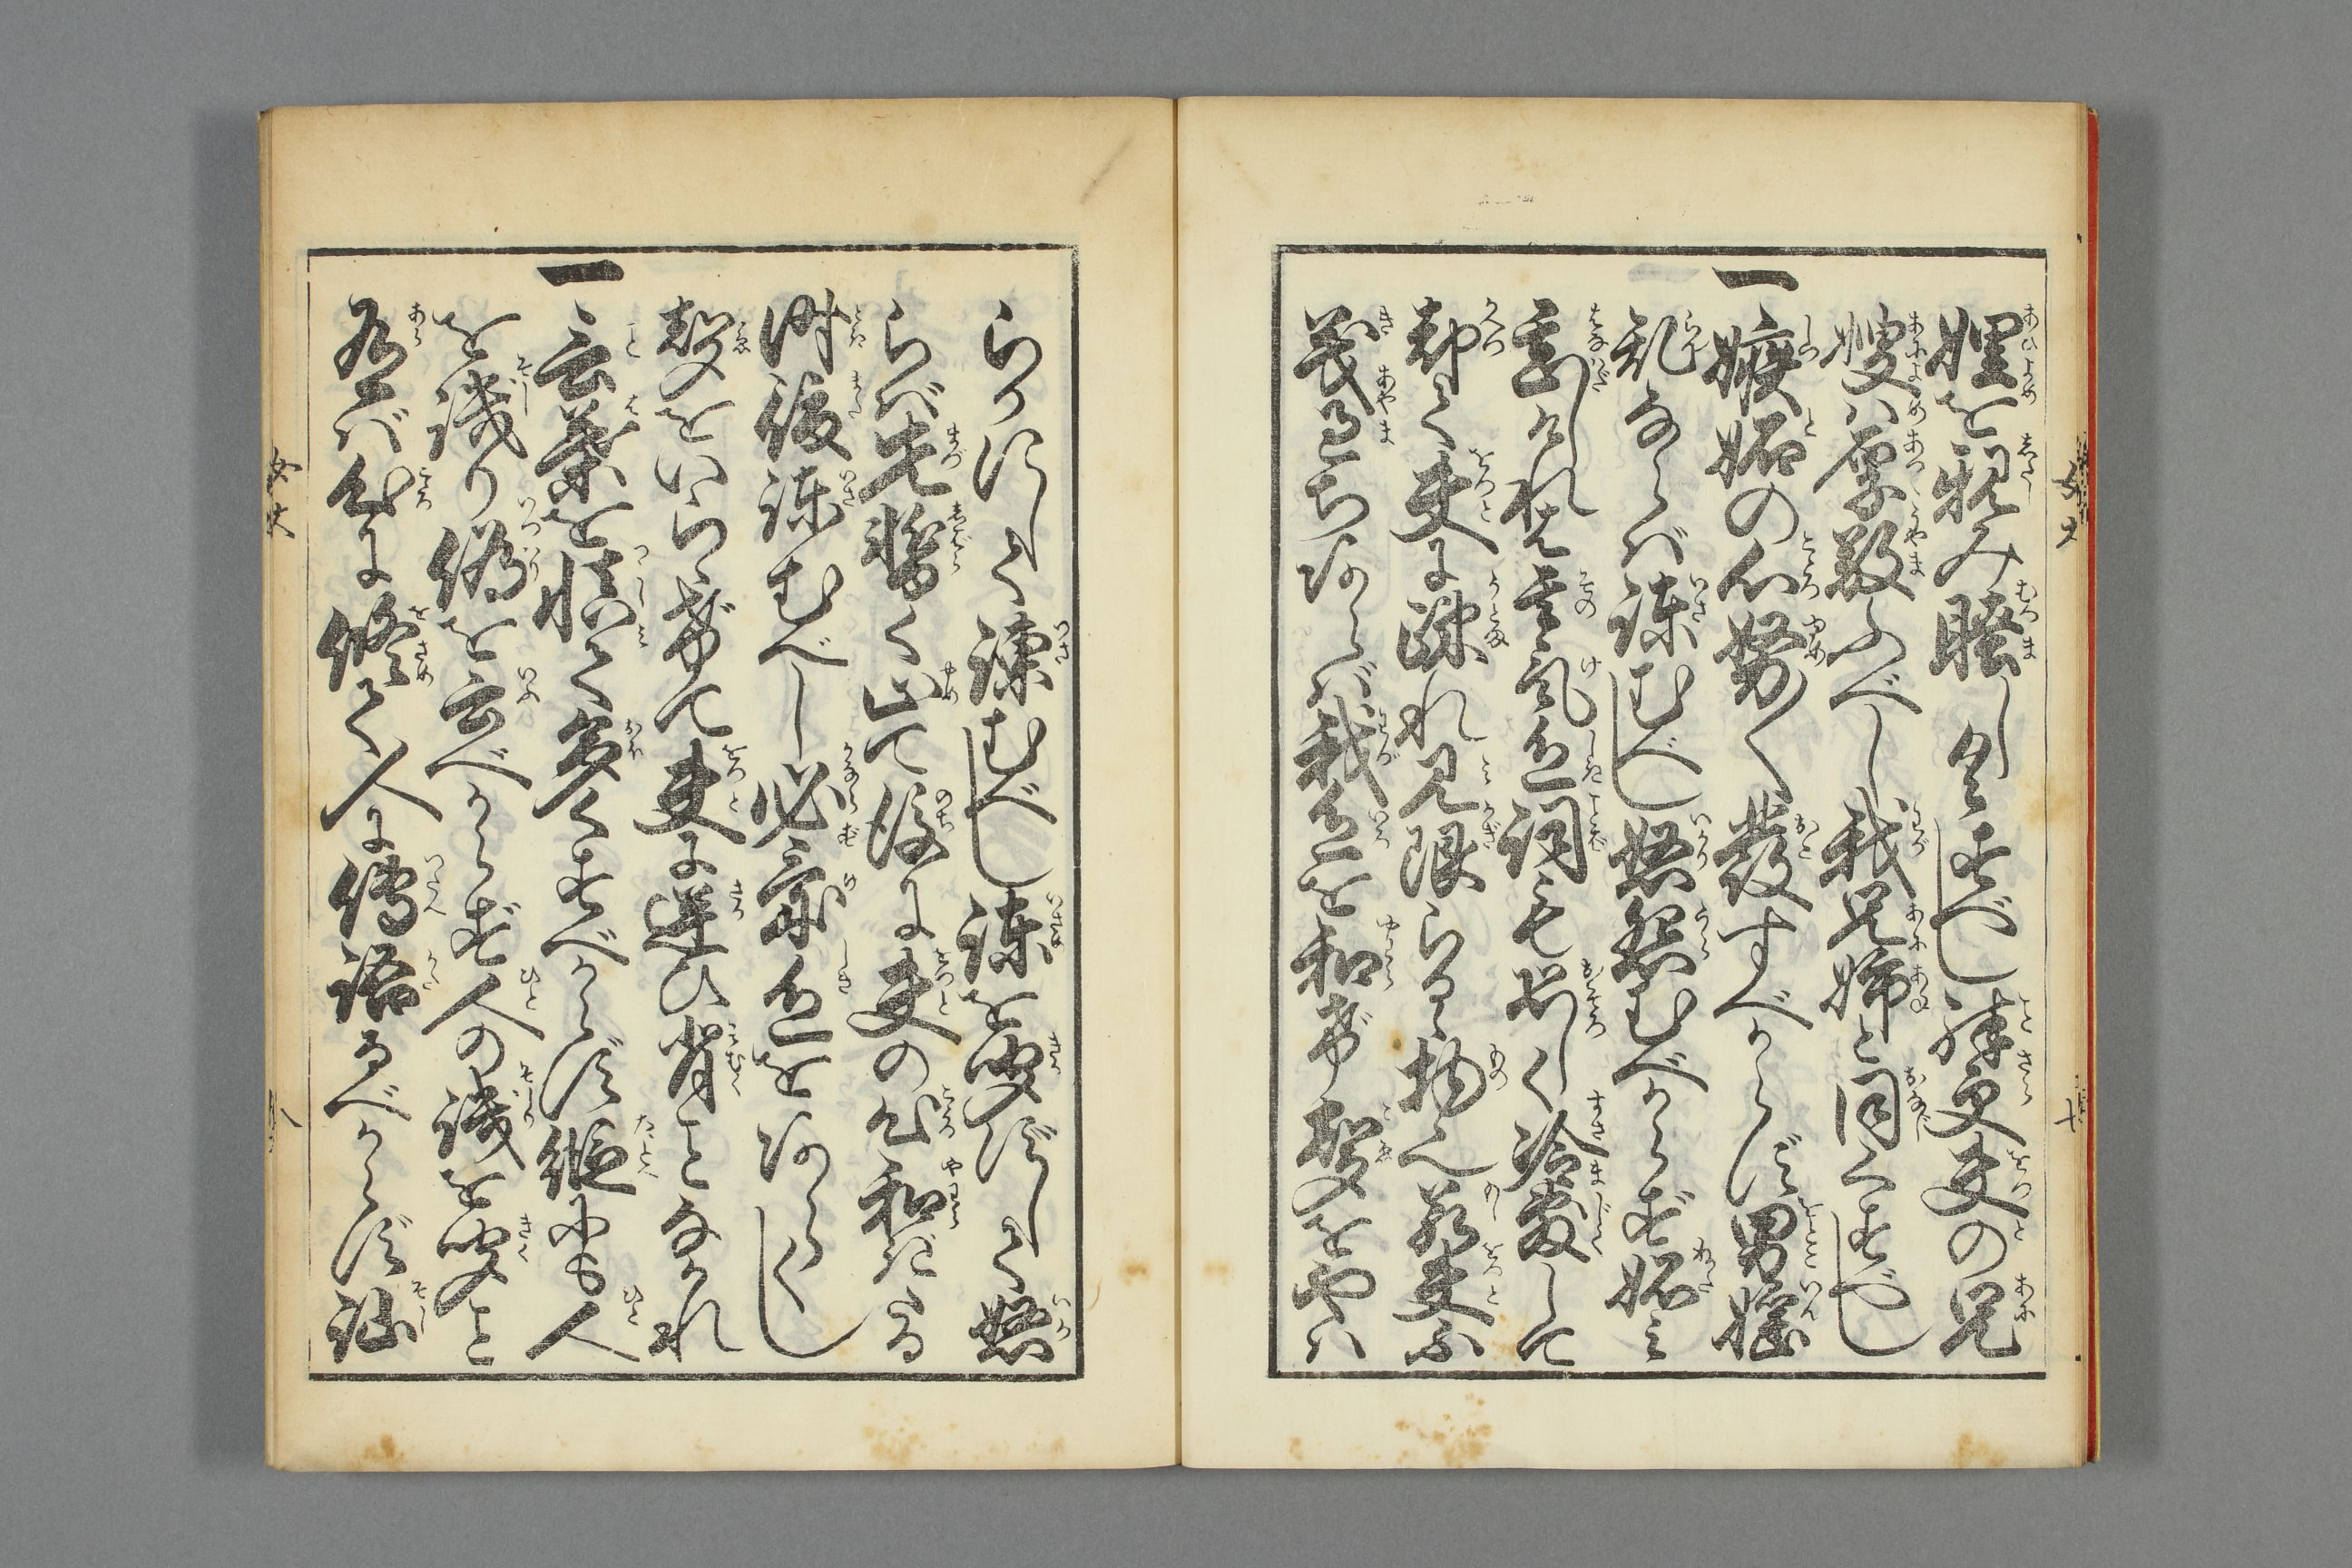 娌を親み睦しくすべし殊更夫の兄
嫂は厚敬ふべし我兄姉と同くすべし
一
嫉妬の心努々発すべからず男婬
乱ならば諫むべし怒怨むべからず妬み
甚しければ其気色詞も恐しく冷敷して
却て夫に疎れ見限らるゝ物也若夫不
義過ちあらば我色を和げ声をやは
らかにして諫むべし諫を聞ずして怒
らば先暫く止て後に夫の心和ぎたる
時復諫むべし必気色をあらくし
声をいらゝげて夫に逆ひ背ことなかれ
一
言葉を慎て多くすべからず仮にも人
を謗り偽を云べからず人の謗を聞こと
有ば心に修て人に伝語るべからず謗